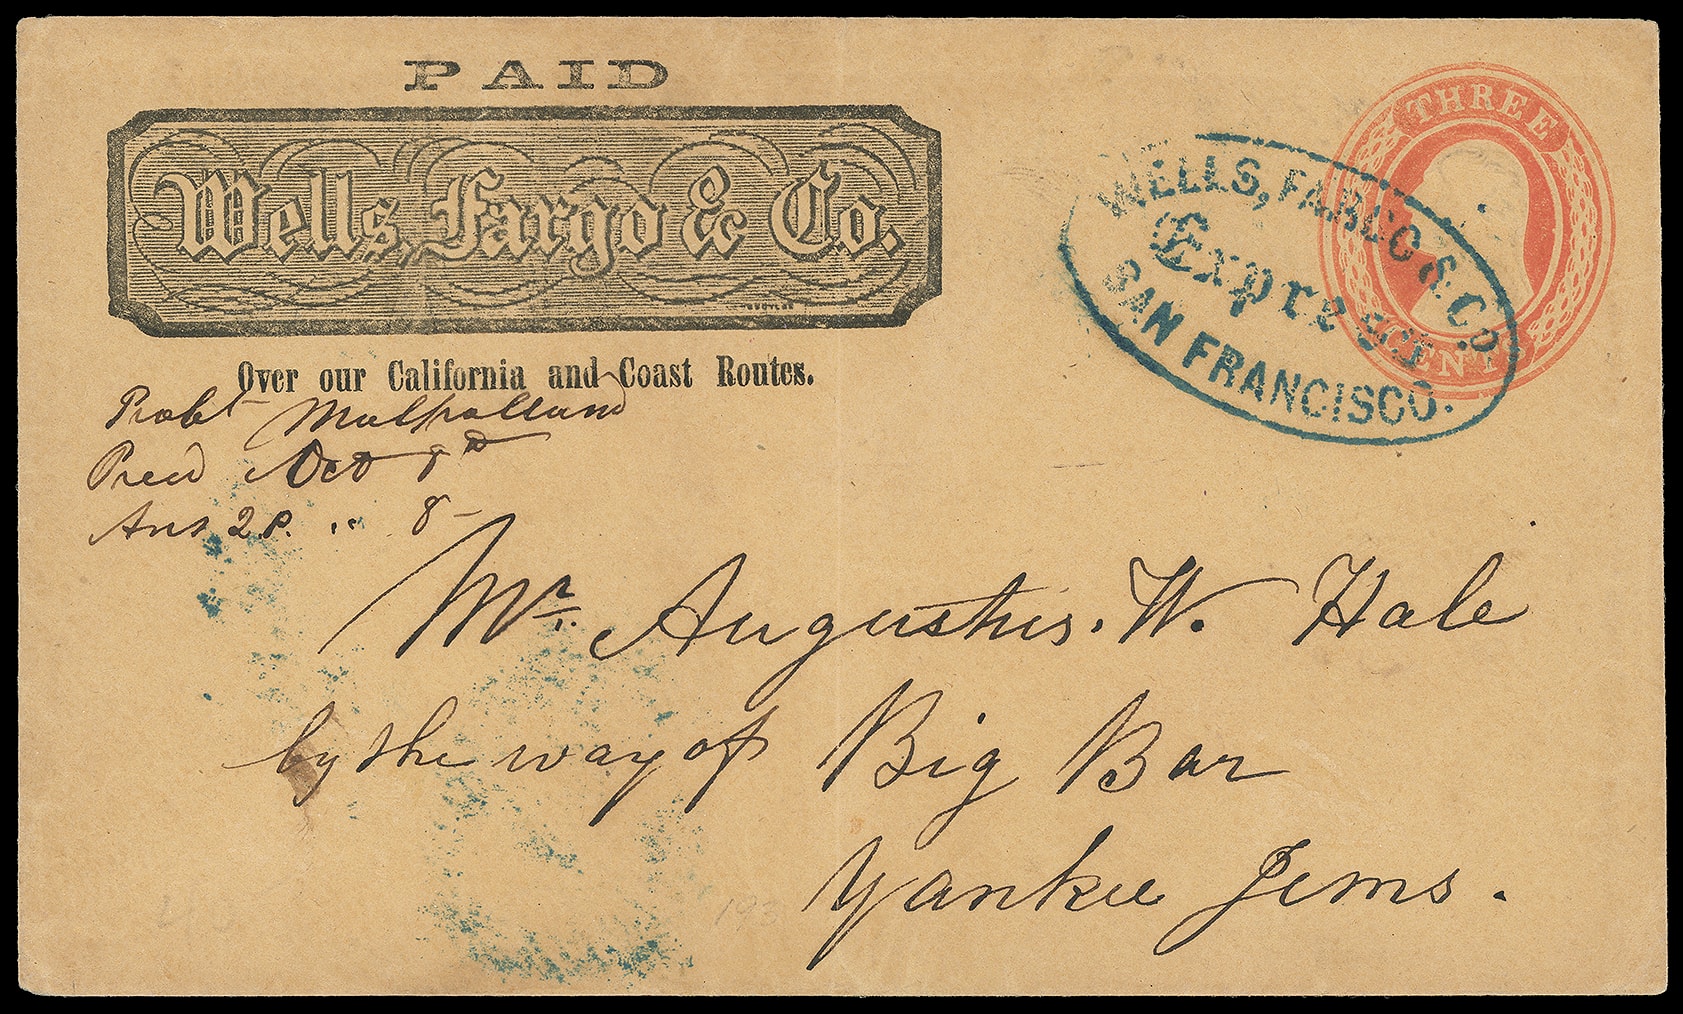 PAID
Wells, Fargo & Co.
Over our California and Coast Routes.
THREE
CENTS
WELLS, FARGO & Co.
Express
SAN FRANCISCO.
Robt Mulholland
Recd Oct 8th
Ans 2 P. " 8 -
Mr. Augustus. W. Hale
by the way of Big Bar
Yankee Jems.
193